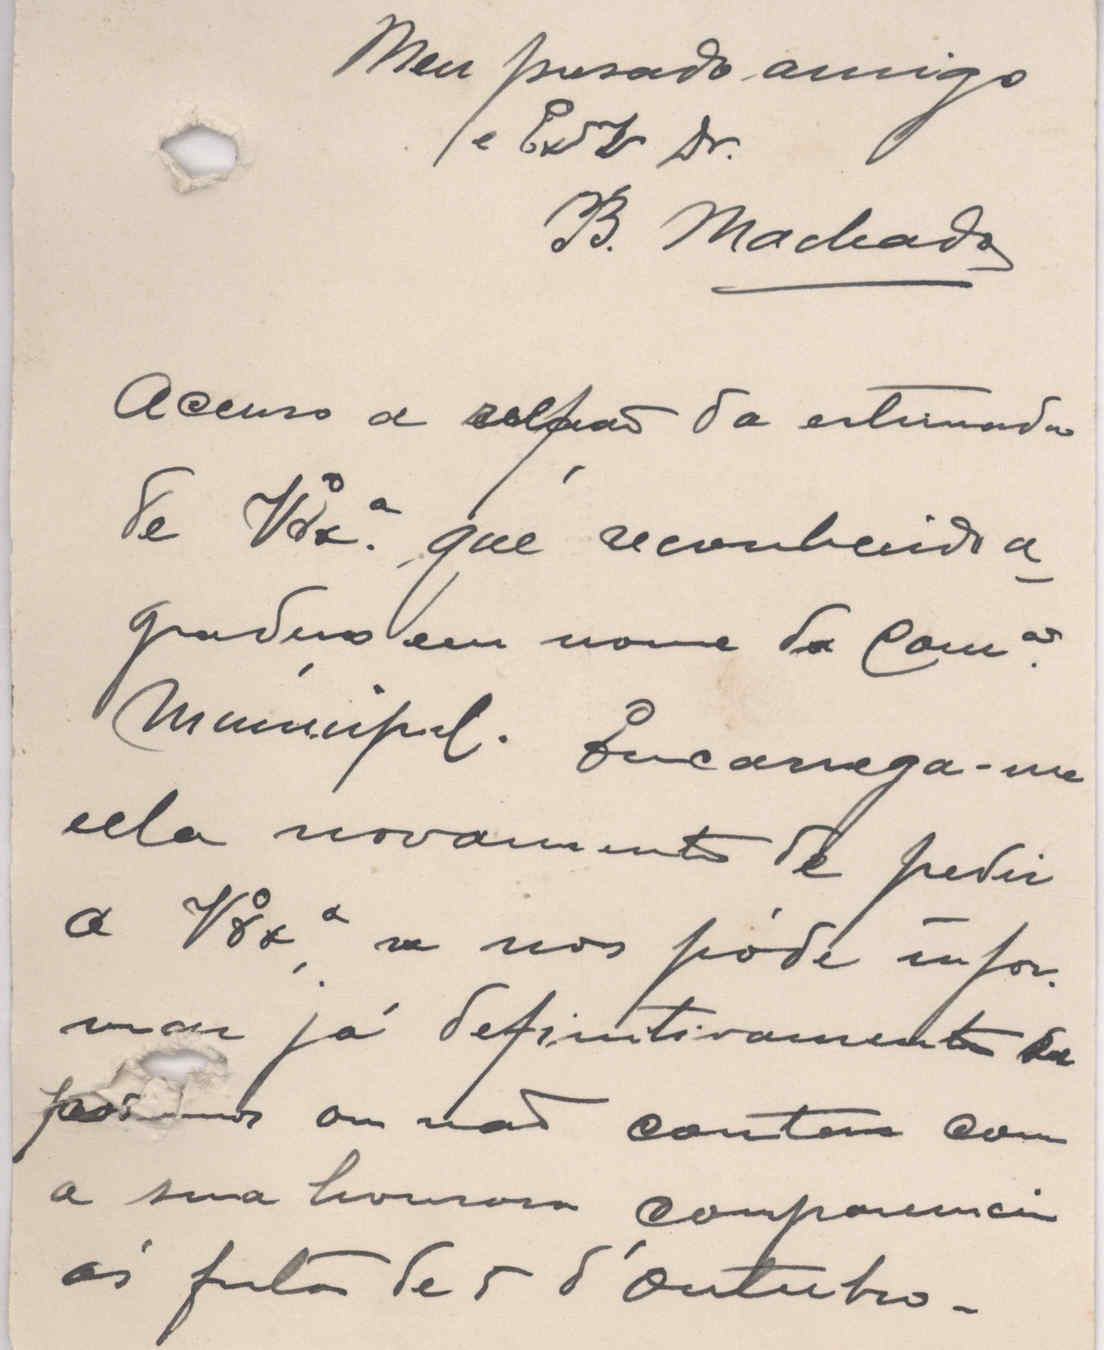 Meu presado amigo
e Exmo Dr.
B. Machado
Accuso a da estimada
de V. Ex.ª que reconhecido a-
gradeço em nome da Com.ão
Municipal. Encarrega-me
ella novamente de pedir
a V. Ex.ª, se nos póde infor-
mar já definitivamente se
podemos ou não contar com
a sua honrosa comparencia
ás festas de 5 d'Outubro.-